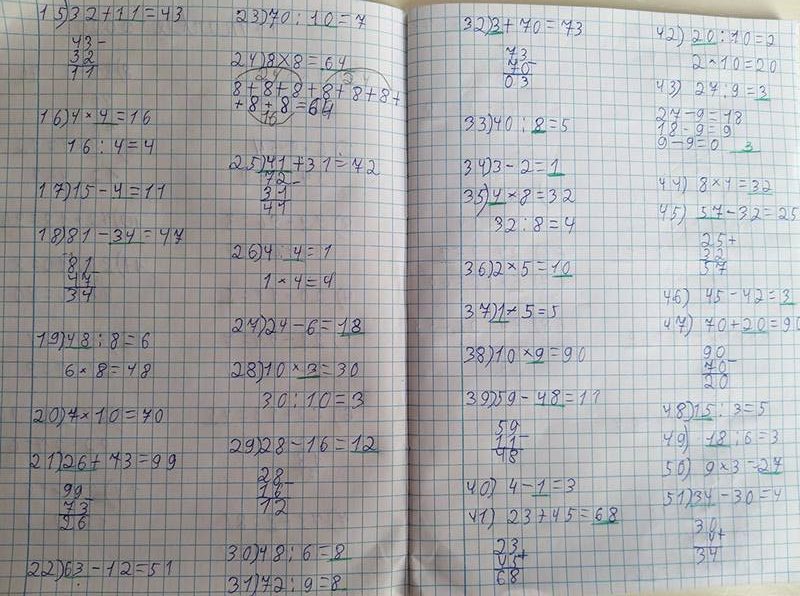 15) 32 + 11 = 43
43 -
32
11
16) 4 × 4 = 16
16 : 4 = 4
17) 15 - 4 = 11
18) 81 - 34 = 47
81
47 -
34
19) 48 : 8 = 6
6 × 8 = 48
20) 7 × 10 = 70
21) 26 + 73 = 99
99 -
73
26
22) 63 - 12 = 51
23) 70 : 10 = 7
24) 8 × 8 = 64
24 24
8 + 8 + 8 + 8 + 8 + 8 +
+ 8 + 8 = 64
16
25) 41 + 31 = 72
72 -
31
41
26) 4 : 4 = 1
1 × 4 = 4
27) 24 - 6 = 18
28) 10 × 3 = 30
30 : 10 = 3
29) 28 - 16 = 12
28 -
16
12
30) 48 : 6 = 8
31) 72 : 9 = 8
32) 3 + 70 = 73
73 -
70
03
33) 40 : 8 = 5
34) 3 - 2 = 1
35) 4 × 8 = 32
32 : 8 = 4
36) 2 × 5 = 10
37) 1 × 5 = 5
38) 10 × 9 = 90
39) 59 - 48 = 11
59 -
11
48
40) 4 - 1 = 3
41) 23 + 45 = 68
23 +
45
68
42) 20 : 10 = 2
2 × 10 = 20
43) 27 : 9 = 3
27 - 9 = 18
18 - 9 = 9
9 - 9 = 0 3
44) 8 × 4 = 32
45) 57 - 32 = 25
25 +
32
57
46) 45 - 42 = 3
47) 70 + 20 = 90
90 -
70
20
48) 15 : 3 = 5
49) 18 : 6 = 3
50) 9 × 3 = 27
51) 34 - 30 = 4
30
4 +
34